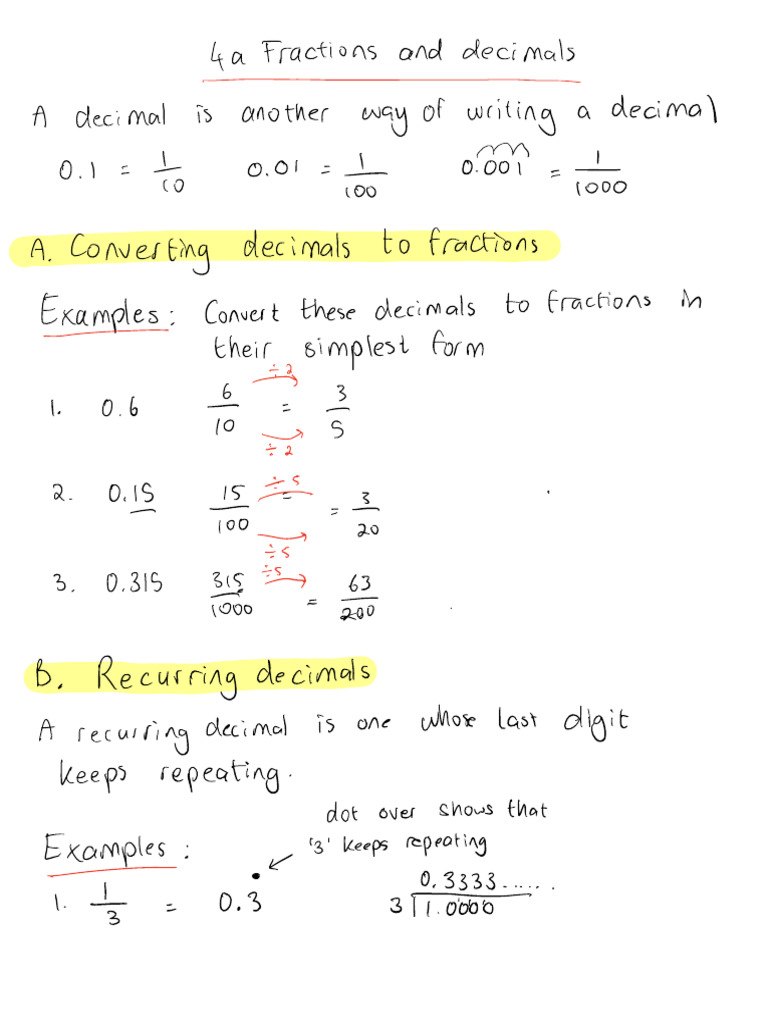 4a Fractions and decimals
A decimal is another way of writing a decimal
0.1 = 1/10 0.01 = 1/100 0.001 = 1/1000
A. Converting decimals to fractions
Examples: Convert these decimals to fractions in
their simplest form
÷2
1. 0.6 6/10 = 3/5
÷2
÷5
2. 0.15 15/100 = = 3/20
÷5
÷5
3. 0.315 315/1000 = 63/200
B. Recurring decimals
A recurring decimal is one whose last digit
keeps repeating.
dot over shows that
Examples: '3' keeps repeating
0.3333......
1. 1/3 = 0.3̇ 3 1.0000